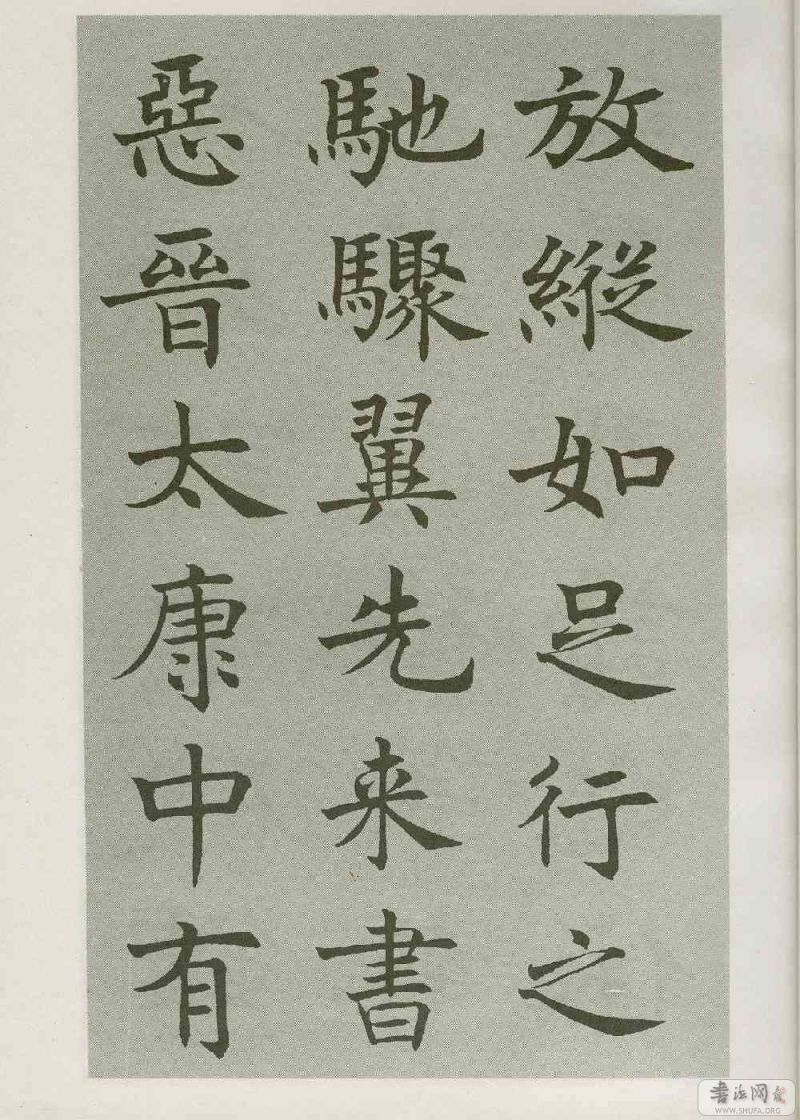 放縱如足行之
馳驟翼先来書
惡晉太康中有
書法网
WWW.SHUFA.ORG